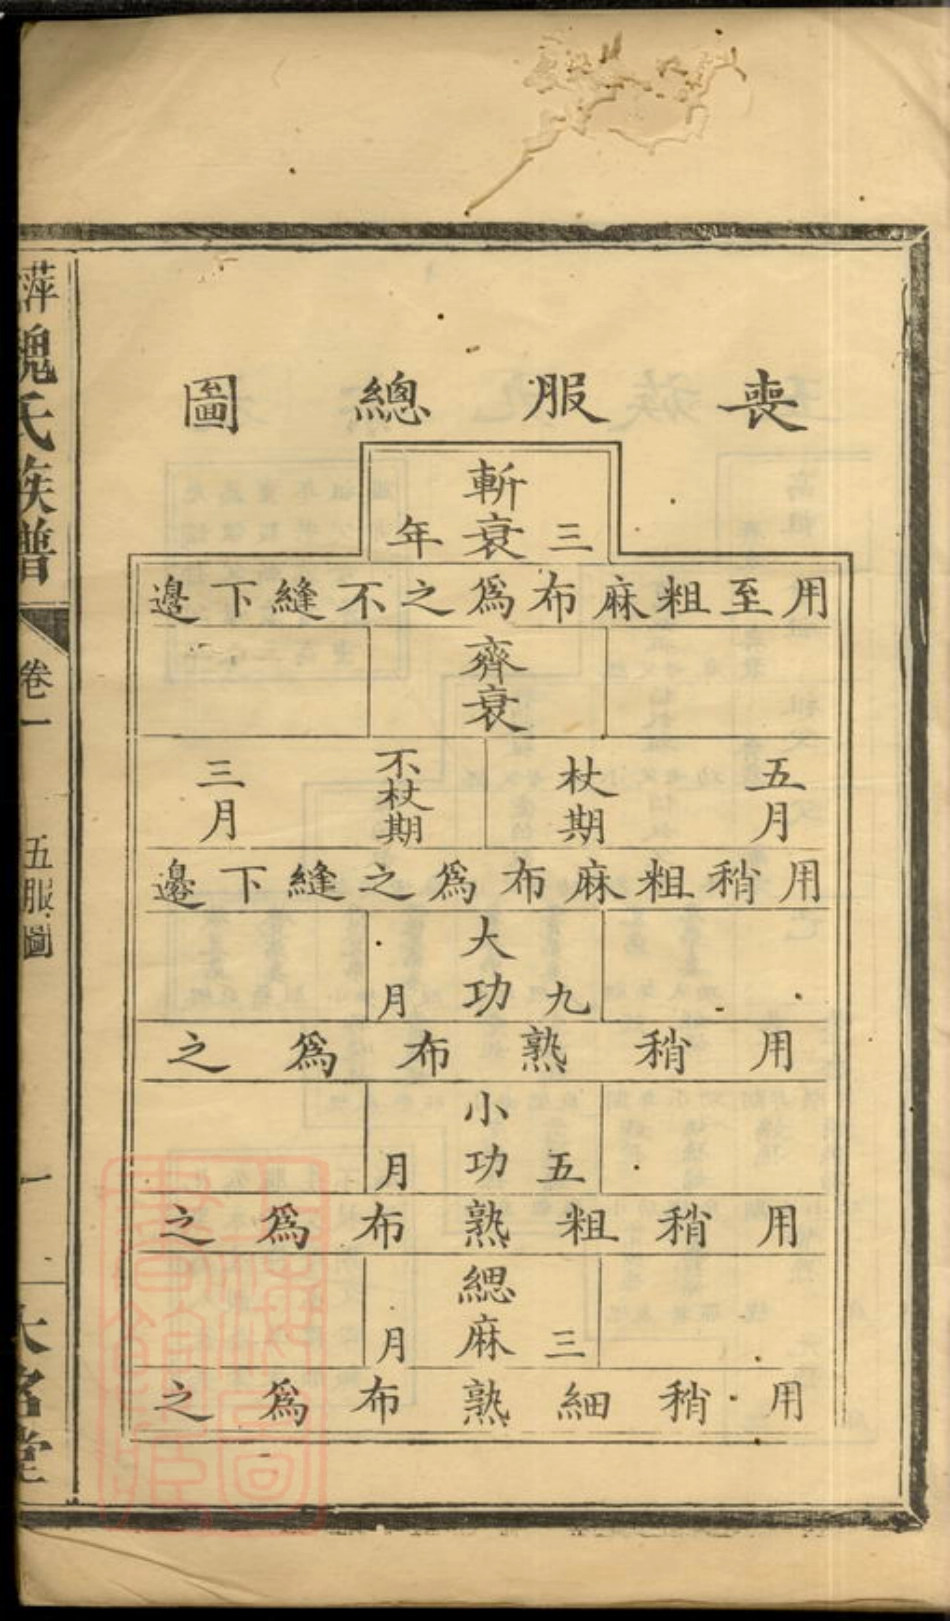 喪服總圖
斬衰
三年
用至粗麻布為之不縫下邊
齊衰
五月
杖期
不杖期
三月
用稍粗麻布為之縫下邊
大功
九月
用稍熟布為之
小功
五月
用稍粗熟布為之
緦麻
三月
用稍細熟布為之
萍魏氏族譜
卷一
五服圖
一
大名堂